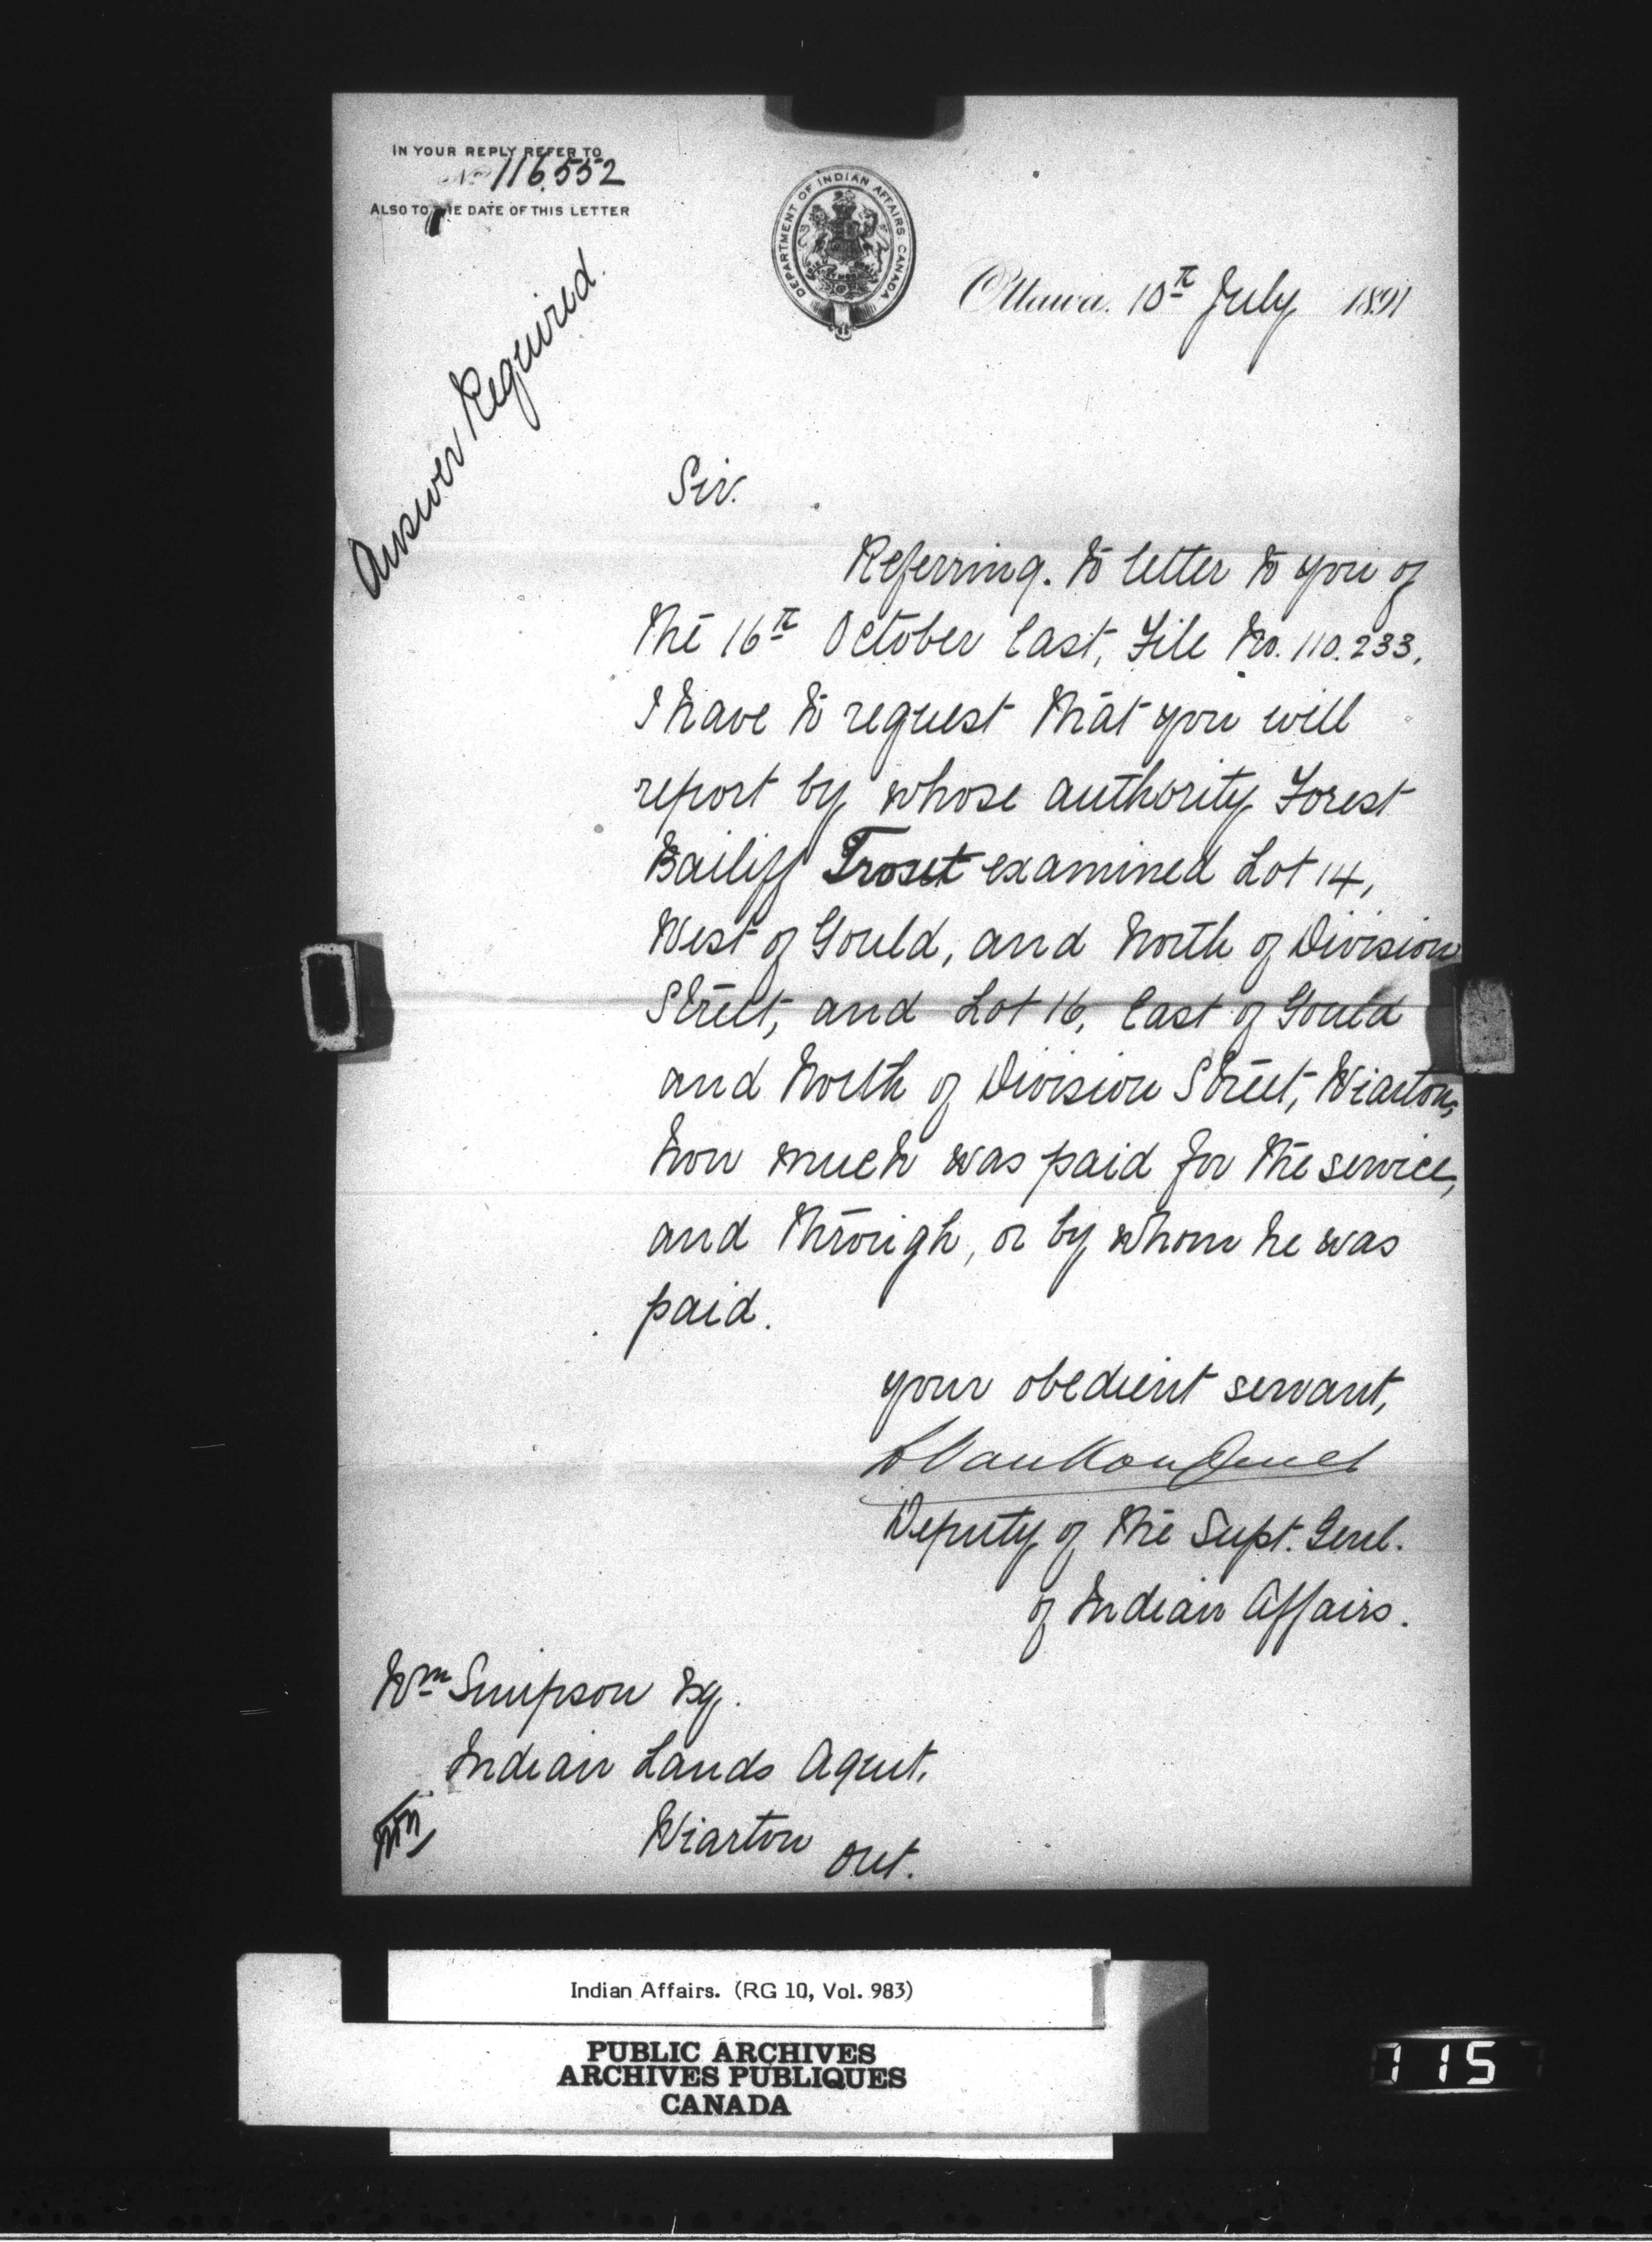 IN YOUR REPLY REFER TO
No 116.552
ALSO TO THE DATE OF THIS LETTER
DEPARTMENT OF INDIAN AFFAIRS CANADA
Ottawa. 10th July 1891
Answer Required.
Sir.
Referring. to letter to you of
the 16th October last, File No. 110.233.
I have to request that you will
report by whose authority Forest
Bailiff examined Lot 14,
West of Gould, and North of Division
Street, and Lot 16, East of Gould
and North of Division Street, Wiarton,
how much was paid for the service,
and through, or by whom he was
paid.
your obedient servant,
L VanKoughnet
Deputy of the Supt. Genl.
of Indian Affairs.
Wm Simpson Esq.
Indian Lands Agent.
Wiarton Ont.
Indian Affairs. (RG 10, Vol. 983)
PUBLIC ARCHIVES
ARCHIVES PUBLIQUES
CANADA
115